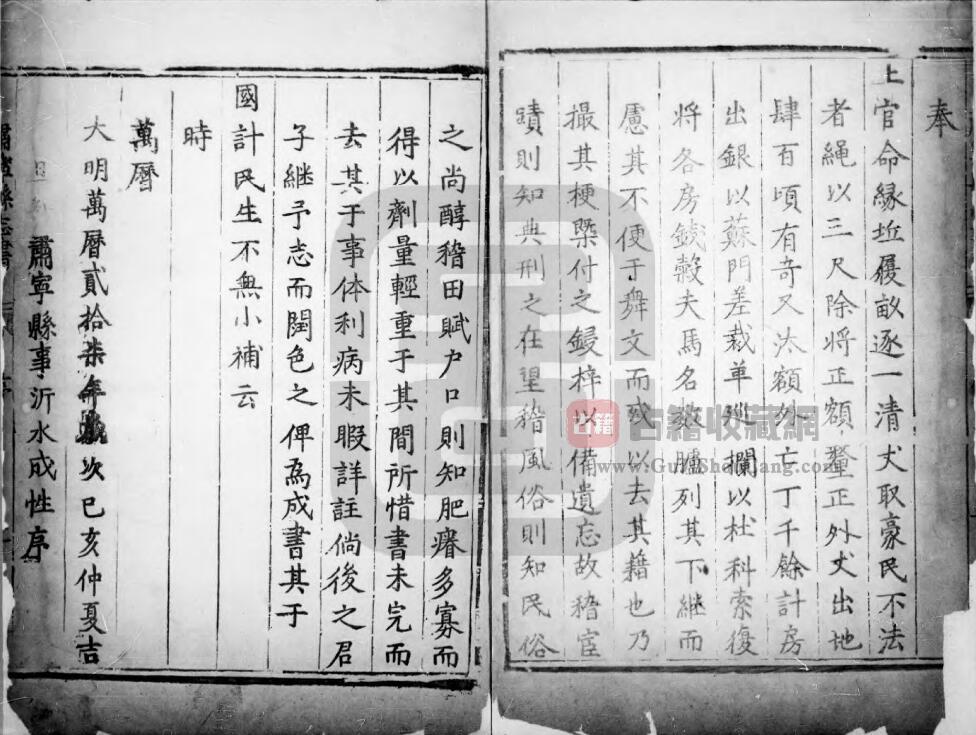 奉
上官命緣坵履畝逐一清丈取豪民不法
者繩以三尺除將正額釐正外丈出地
肆百頃有奇又汰額外亡丁千餘計房
出銀以蘇門差裁革巡攔以杜科索復
將各房錢穀夫馬名數臚列其下継而
慮其不便于舞文而或以去其籍也乃
撮其梗槩付之鋟梓以備遺忘故稽官
蹟則知典刑之在望稽風俗則知民俗
之尚醇稽田賦户口則知肥瘠多寡而
得以劑量輕重于其間所惜書未完而
去其于事体利病未暇詳註倘後之君
子継予志而閏色之俾為成書其于
國計民生不無小補云
時
萬曆
大明萬曆貳拾柒年歲次已亥仲夏吉
肅寧縣事沂水成性序
肅寧縣志書 序
古籍 古籍收藏網
www.GuJiShouCang.com